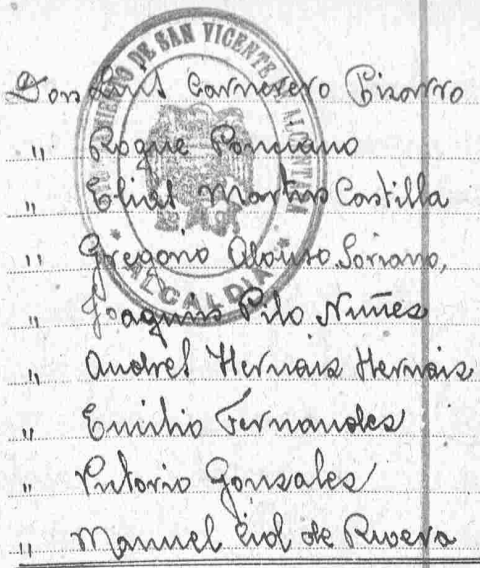 AYUNTAMIENTO DE SAN VICENTE DE ALCANTARA
* ALCALDIA *
Don Luis Carnerero Pizarro
" Roque Ponciano
" Elias Martins Castilla
" Gregorio Alonso Soriano,
" Joaquin Pilo Nuñez
" Andres Hernaiz Hernaiz
" Emilio Fernandez
" Gonzales
" Manuel de Rivera